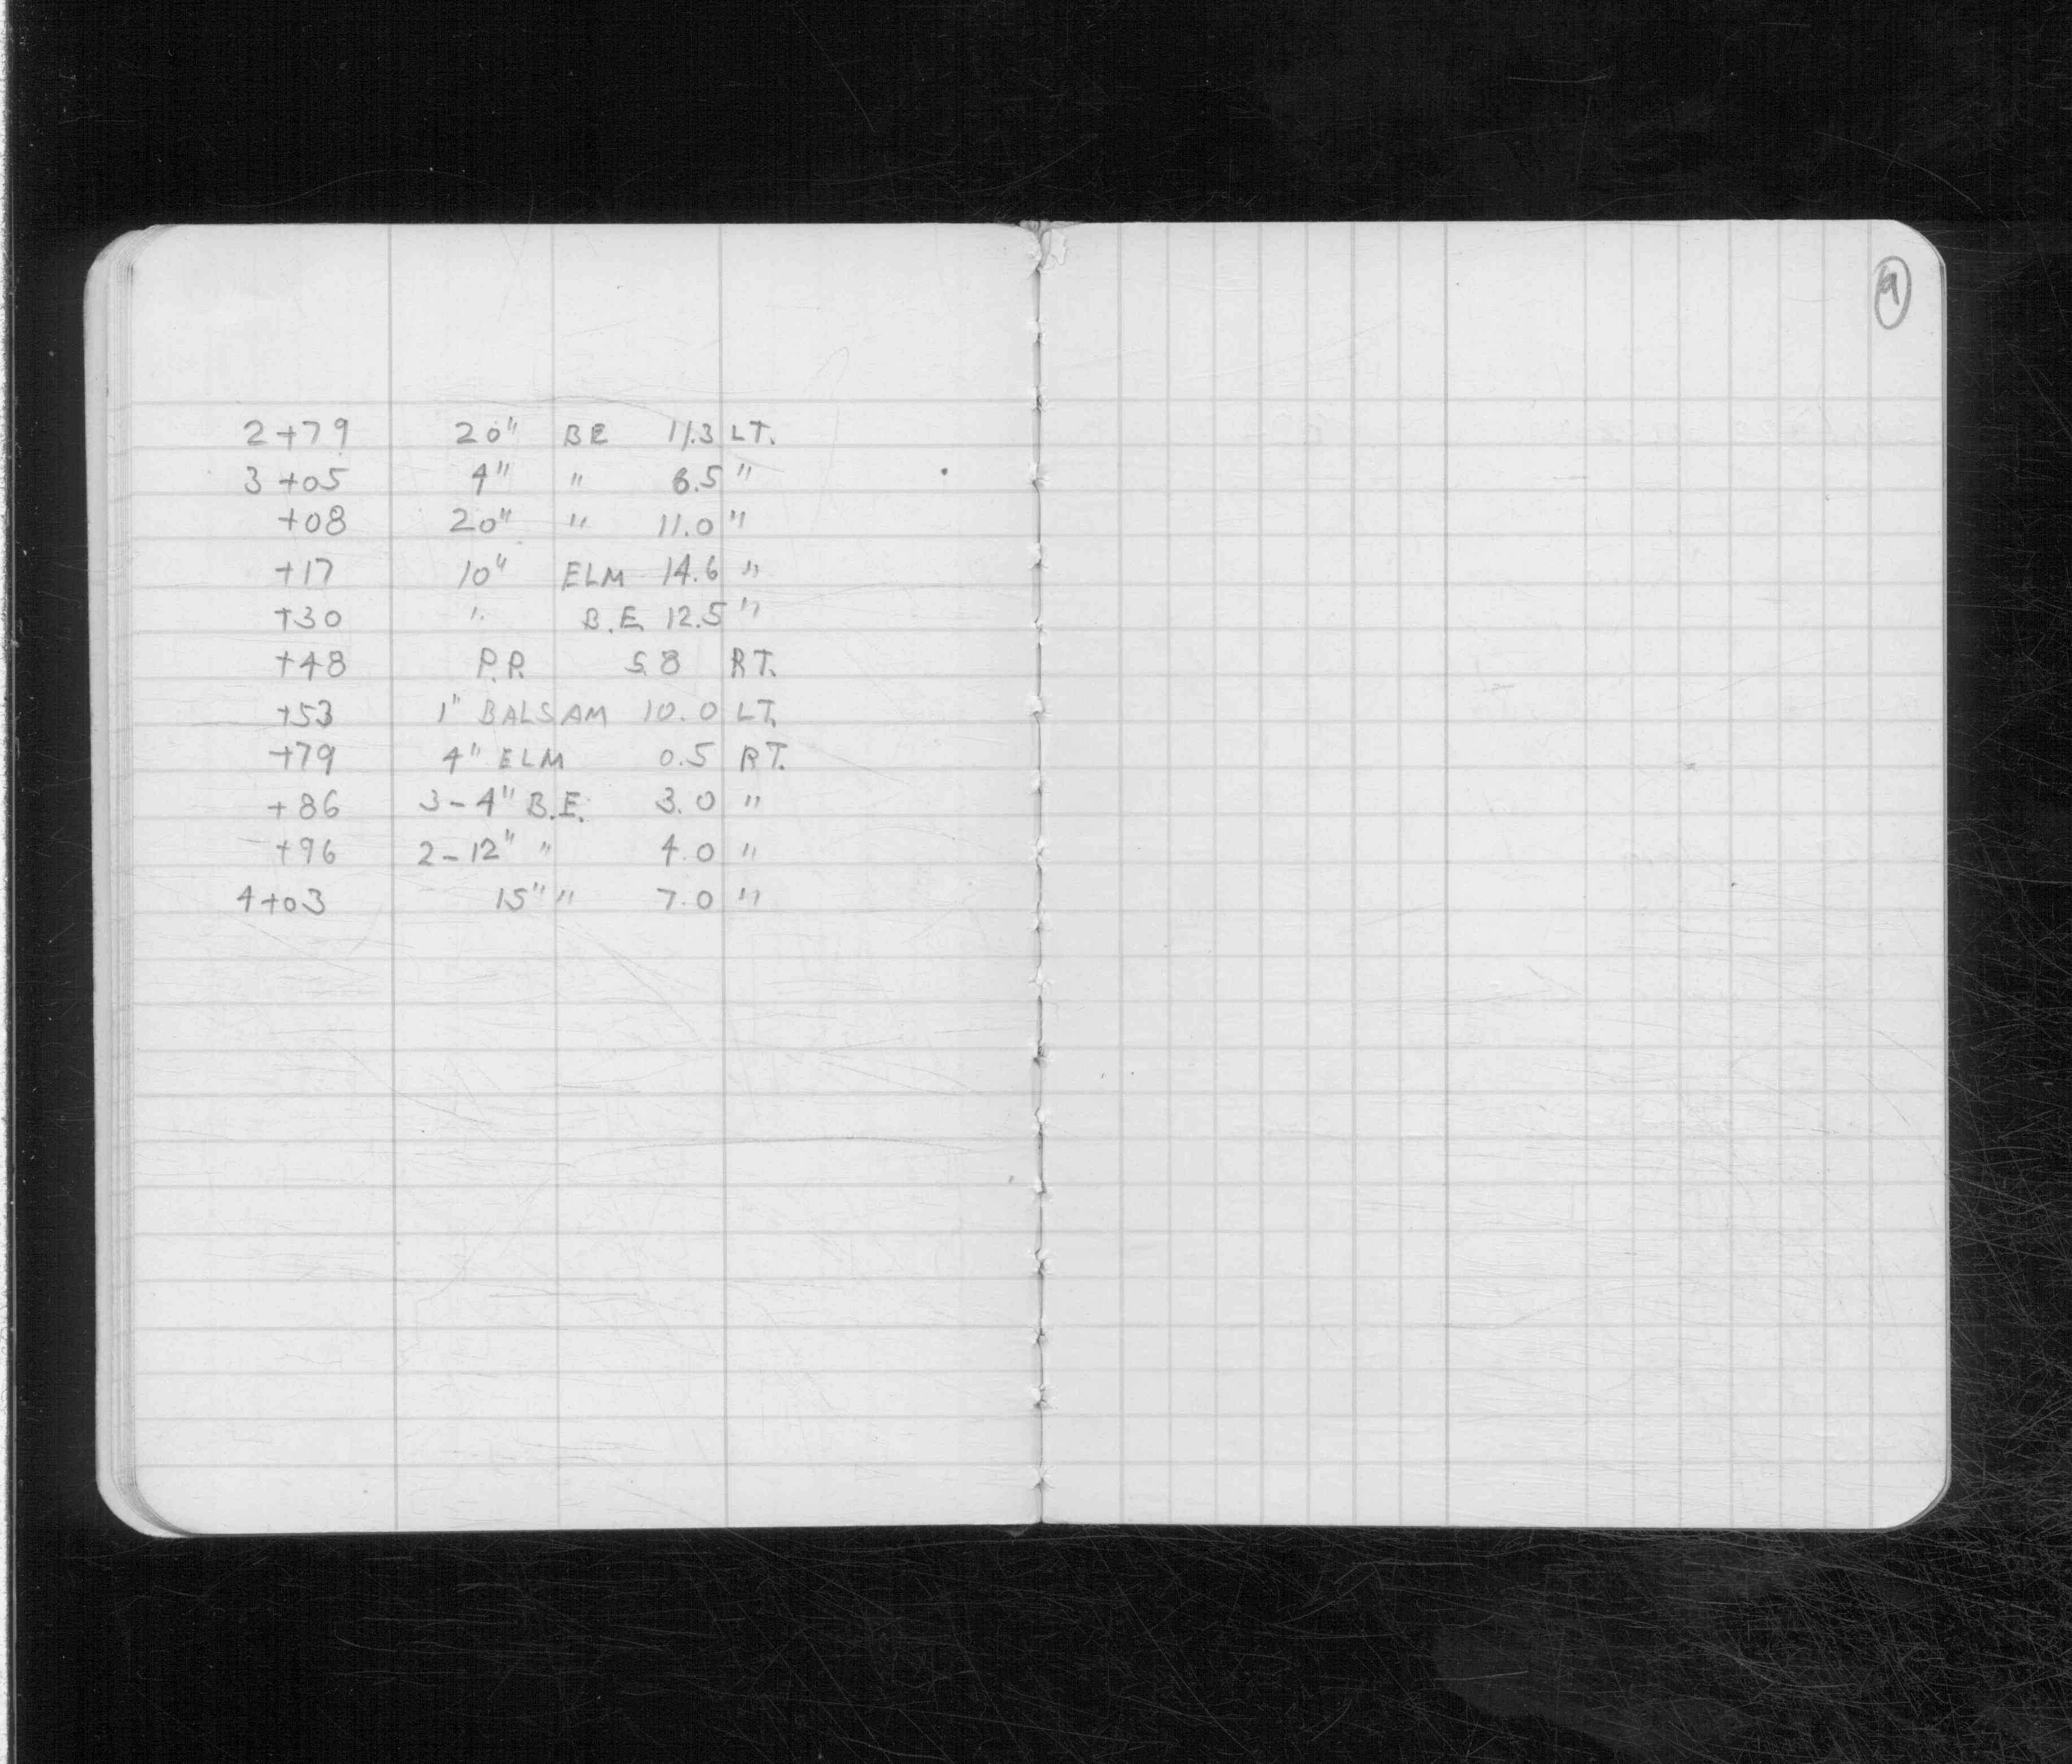 2+79 20" BE 11.3 LT.
3+05 4" " 6.5 "
+08 20" " 11.0 "
+17 10" ELM 14.6 "
+30 " B.E. 12.5 "
+48 P.P. 5.8 RT.
+53 1" BALSAM 10.0 LT.
+79 4" ELM 0.5 RT.
+86 3-4" B.E. 3.0 "
+96 2-12" " 4.0 "
4+03 15" " 7.0 "